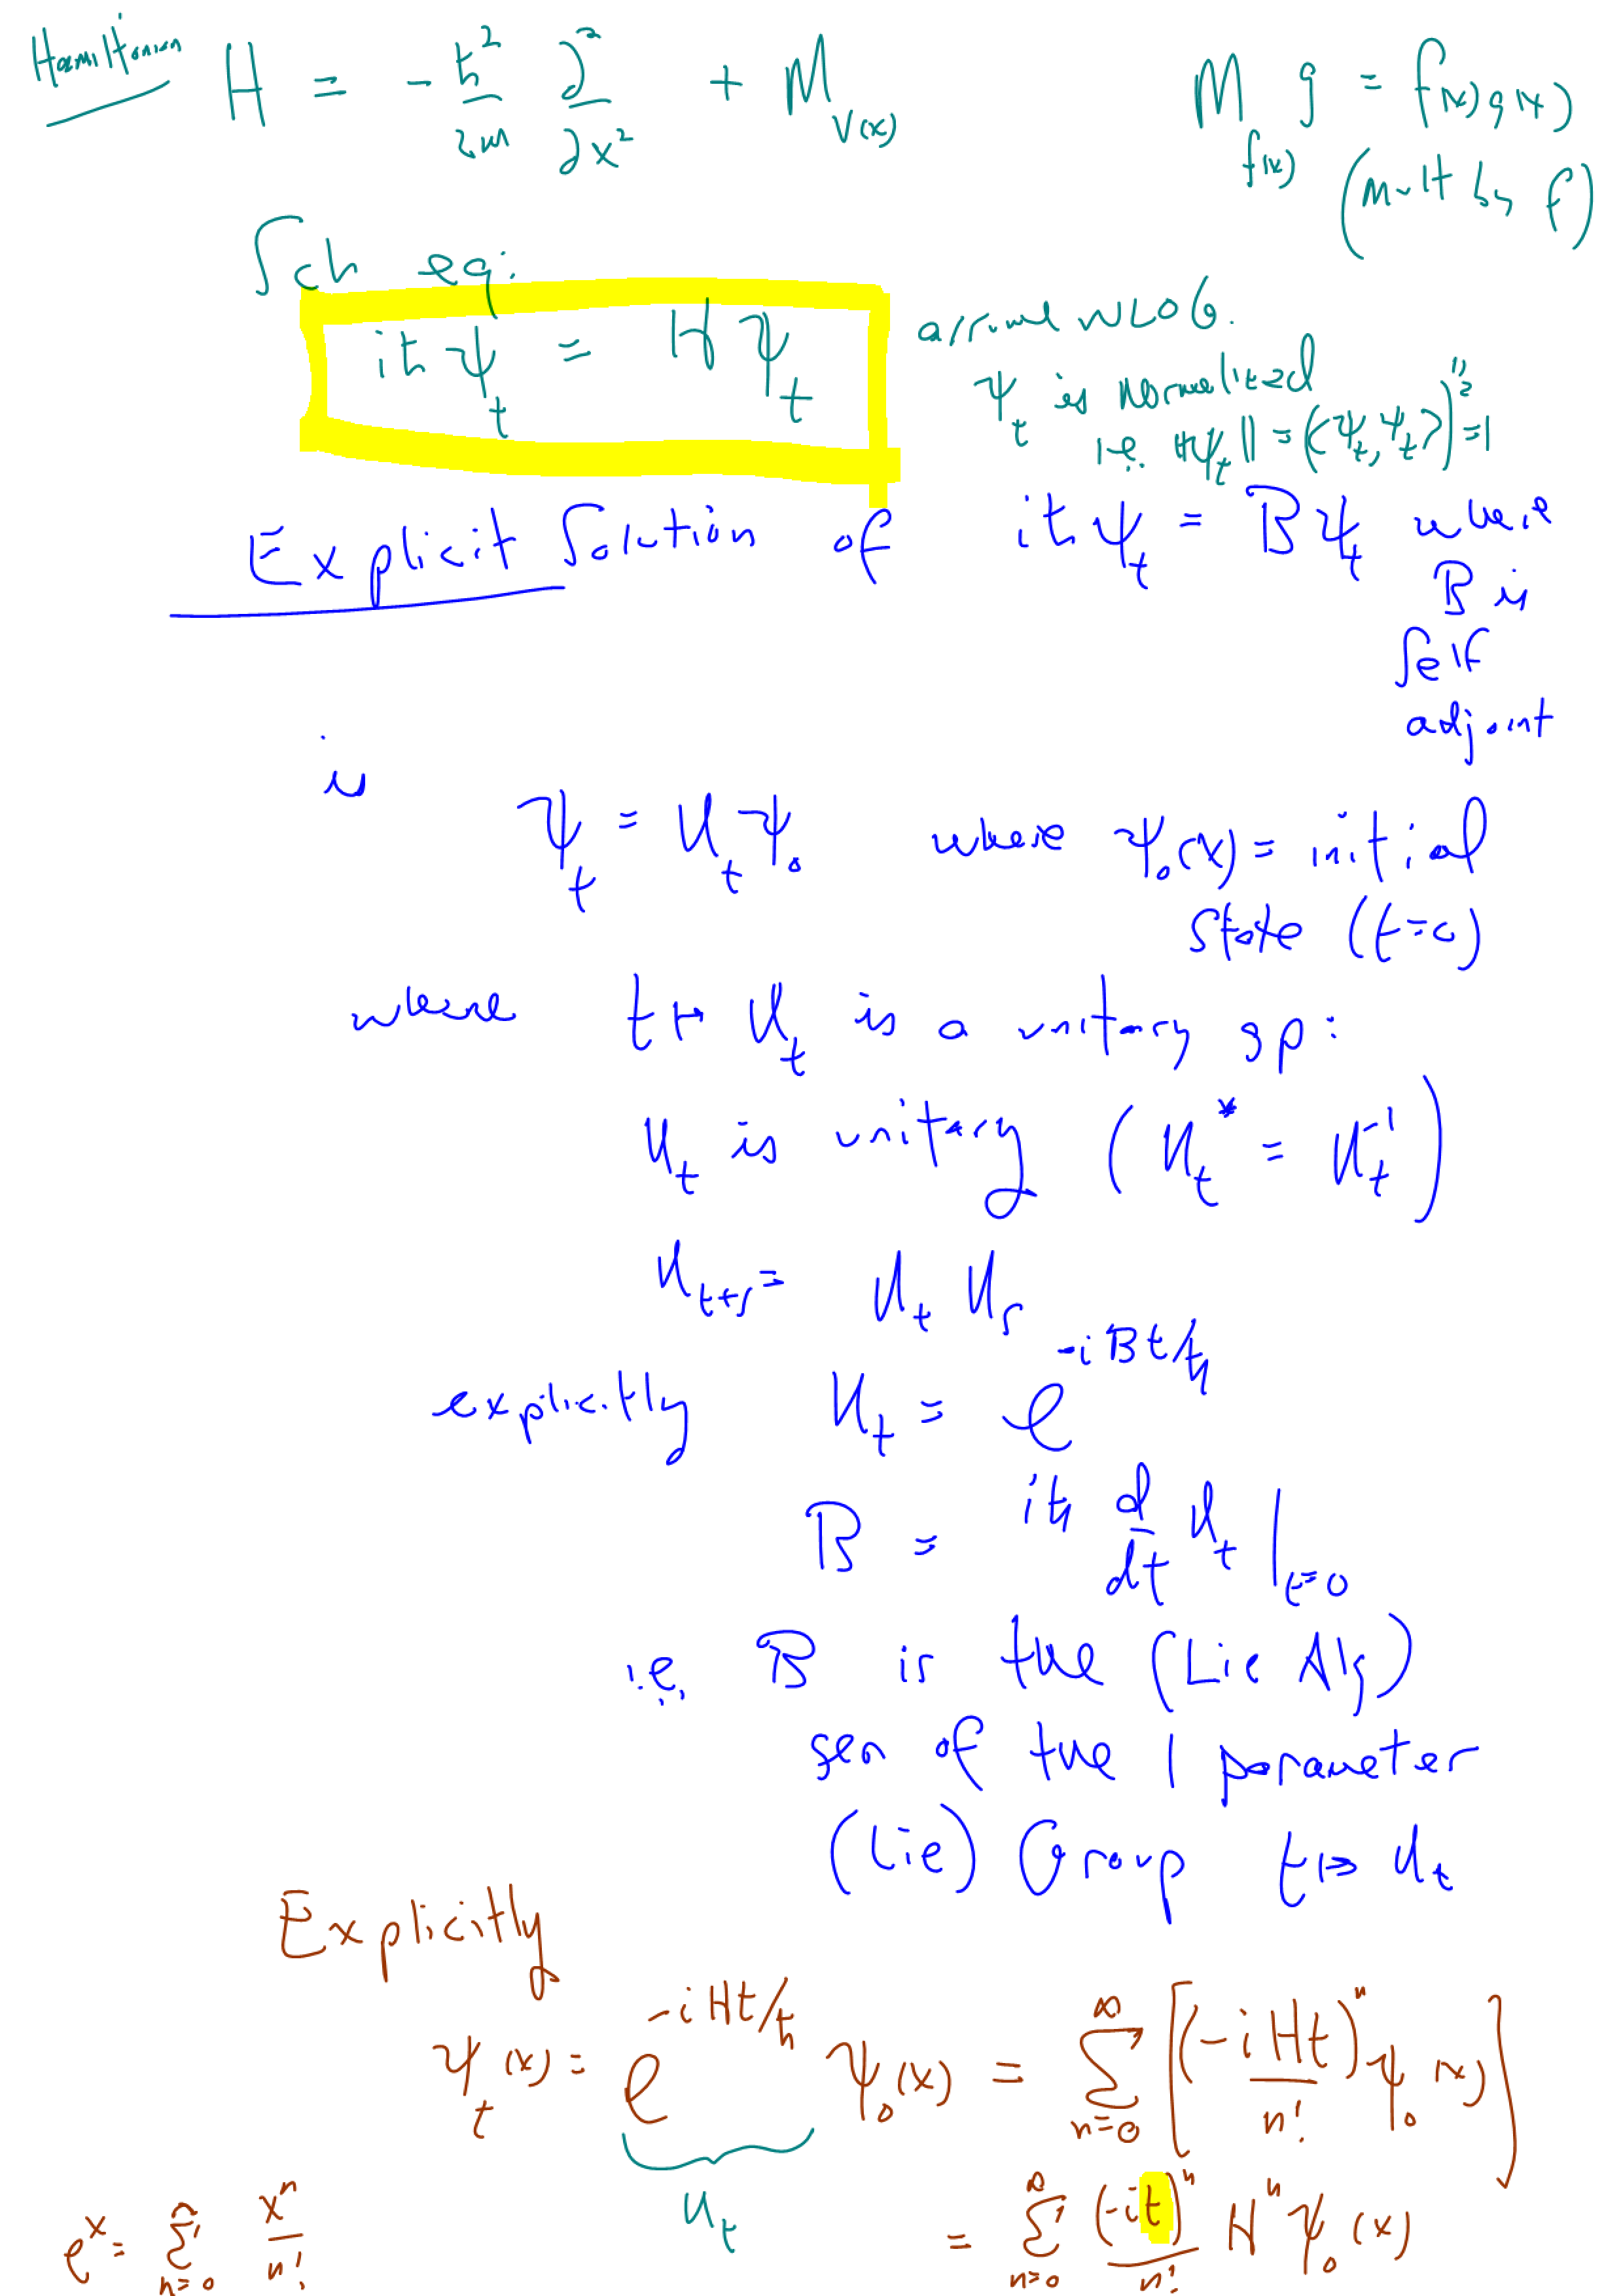 Hamiltonian H = -ħ²/2m ∂²/∂x² + M_V(x)    M_f(x) g = f(x)g(x)
(mult by f)
Sch eq:
iħ ψ_t = H ψ_t    assume WLOG.
ψ_t is normalized
i.e. ||ψ_t|| = (<ψ_t, ψ_t>)^1/2 = 1
Explicit Solution of iħ ψ_t = Bψ_t where
B is
self
adjoint
is
ψ_t = U_t ψ_0    where ψ_0(x) = initial
state (t=0)
where t ↦ U_t is a unitary gp:
U_t is unitary (U_t^* = U_t^-1)
U_t+s = U_t U_s
explicitly U_t = e^-iBt/ħ
B = iħ d/dt U_t |_t=0
i.e. B is the (Lie Alg)
gen of the 1 parameter
(Lie) Group t ↦ U_t
Explicitly
ψ_t(x) = e^-iHt/ħ ψ_0(x) = ∑_n=0^∞ [(-iHt)^n/n! ψ_0(x)]
U_t
e^x = ∑_n=0^∞ x^n/n!    = ∑_n=0^∞ (-it)^n/n! H^n ψ_0(x)